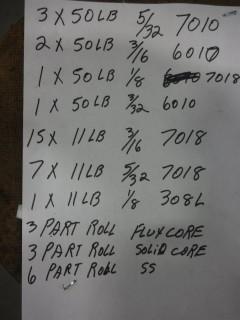 3 X 50LB 5/32 7010
2 X 50LB 3/16 6010
1 X 50LB 1/8 7018
1 X 50LB 3/32 6010
15 X 11LB 3/16 7018
7 X 11LB 5/32 7018
1 X 11LB 1/8 308L
3 PART ROLL FLUXCORE
3 PART ROLL SOLID CORE
6 PART ROLL SS